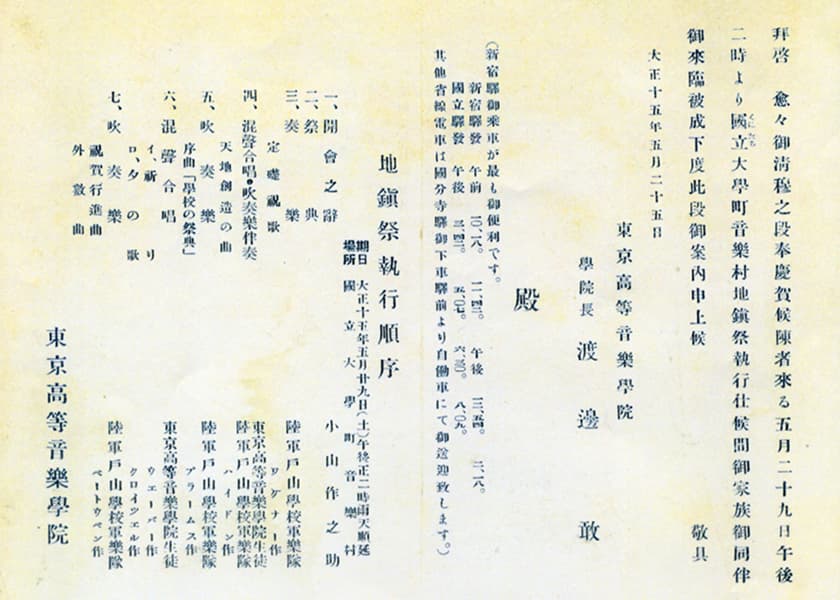 拜啓　愈々御淸穆之段奉慶賀候陳者來る五月二十九日午後
二時より國立大學町音樂村地鎭祭執行仕候間御家族御同伴
くにたち
御來臨被成下度此段御案內申上候　敬具
大正十五年五月二十五日
東京高等音樂學院
學院長　渡邊　敢
殿
(新宿驛御乘車が最も御便利です。
新宿驛發　午前
國立驛發　午後
其他省線電車は國分寺驛御下車驛前より自働車にて御送迎致します。)
地鎭祭執行順序
期日　大正十五年五月廿九日(土)午後正二時雨天順延
場所　國立大學町音樂村
一、開會之辭　小山作之助
二、祭典
三、奏樂　陸軍戶山學校軍樂隊
定礎祝歌　ワグナー作
四、混聲合唱・吹奏樂伴奏　東京高等音樂學院生徒
陸軍戶山學校軍樂隊
天地創造の曲　ハイドン作
五、吹奏樂　陸軍戶山學校軍樂隊
序曲「學校の祭典」　ブラームス作
六、混聲合唱　東京高等音樂學院生徒
イ、祈り　ウエーバー作
ロ、夕の歌　クロイツエル作
七、吹奏樂　陸軍戶山學校軍樂隊
祝賀行進曲　ベートウベン作
外數曲
東京高等音樂學院